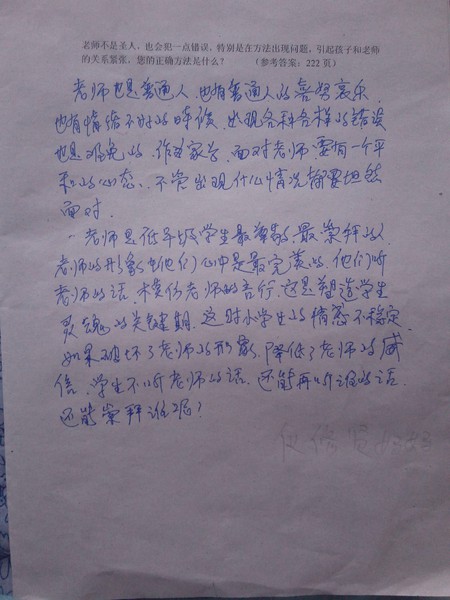 老师不是圣人，也会犯一点错误，特别是在方法出现问题，引起孩子和老师
的关系紧张，您的正确方法是什么？（参考答案：222页）
老师也是普通人，也有普通人的喜怒哀乐，
也有情绪不好的时候，出现各种各样的错误
也是难免的，作为家长，面对老师，要有一个平
和的心态，不管出现什么情况都要坦然
面对。
老师是低年级学生最尊敬、最崇拜的人，
老师的形象在他们心中是最完美的，他们听
老师的话，模仿老师的言行，这是塑造学生
灵魂的关键期，这时小学生的情感不稳定，
如果破坏了老师的形象，降低了老师的威
信，学生不听老师的话，还能再听谁的话，
还能崇拜谁呢？